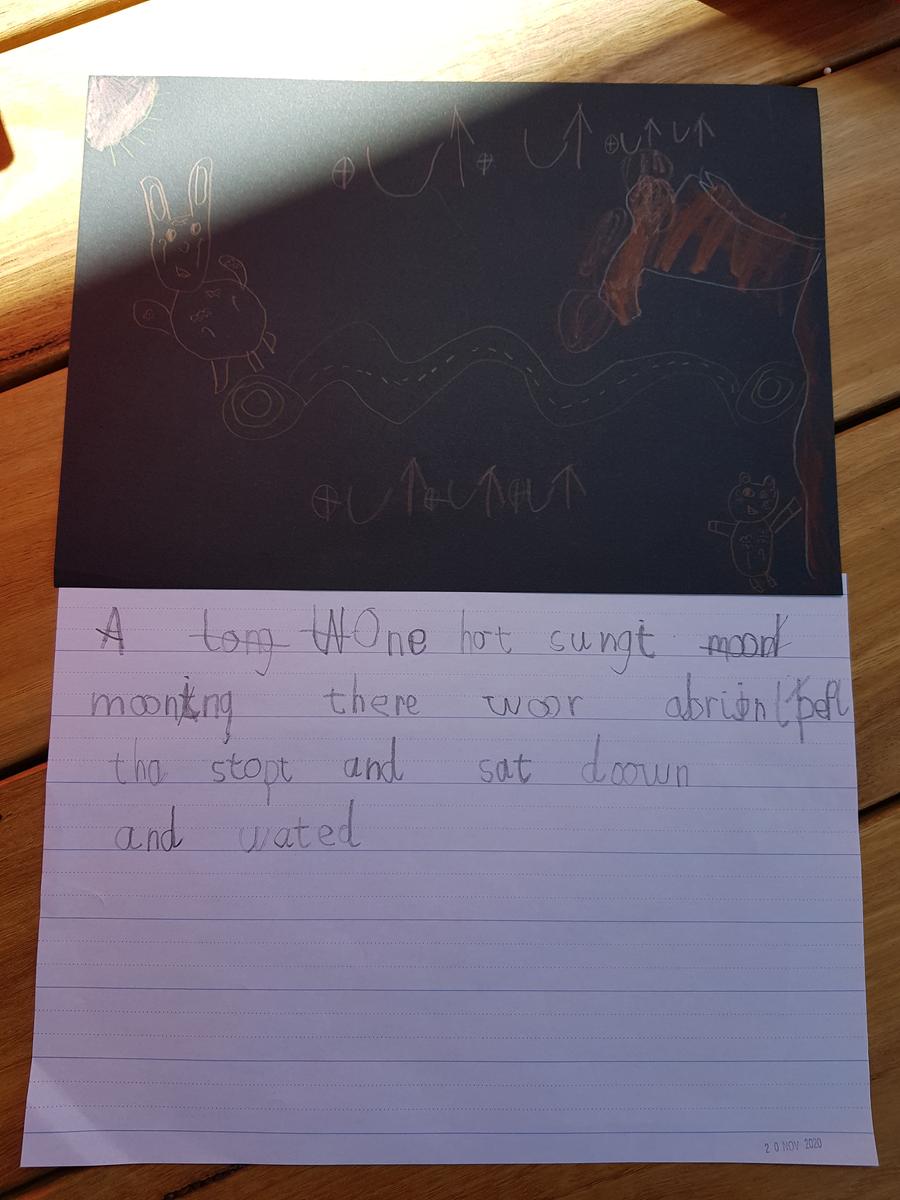 A ~~tong~~ ~~tW~~One hot sungt ~~moont~~
moonting there woor abrion
tha stopt and sat doown
and wated
20 NOV 2020